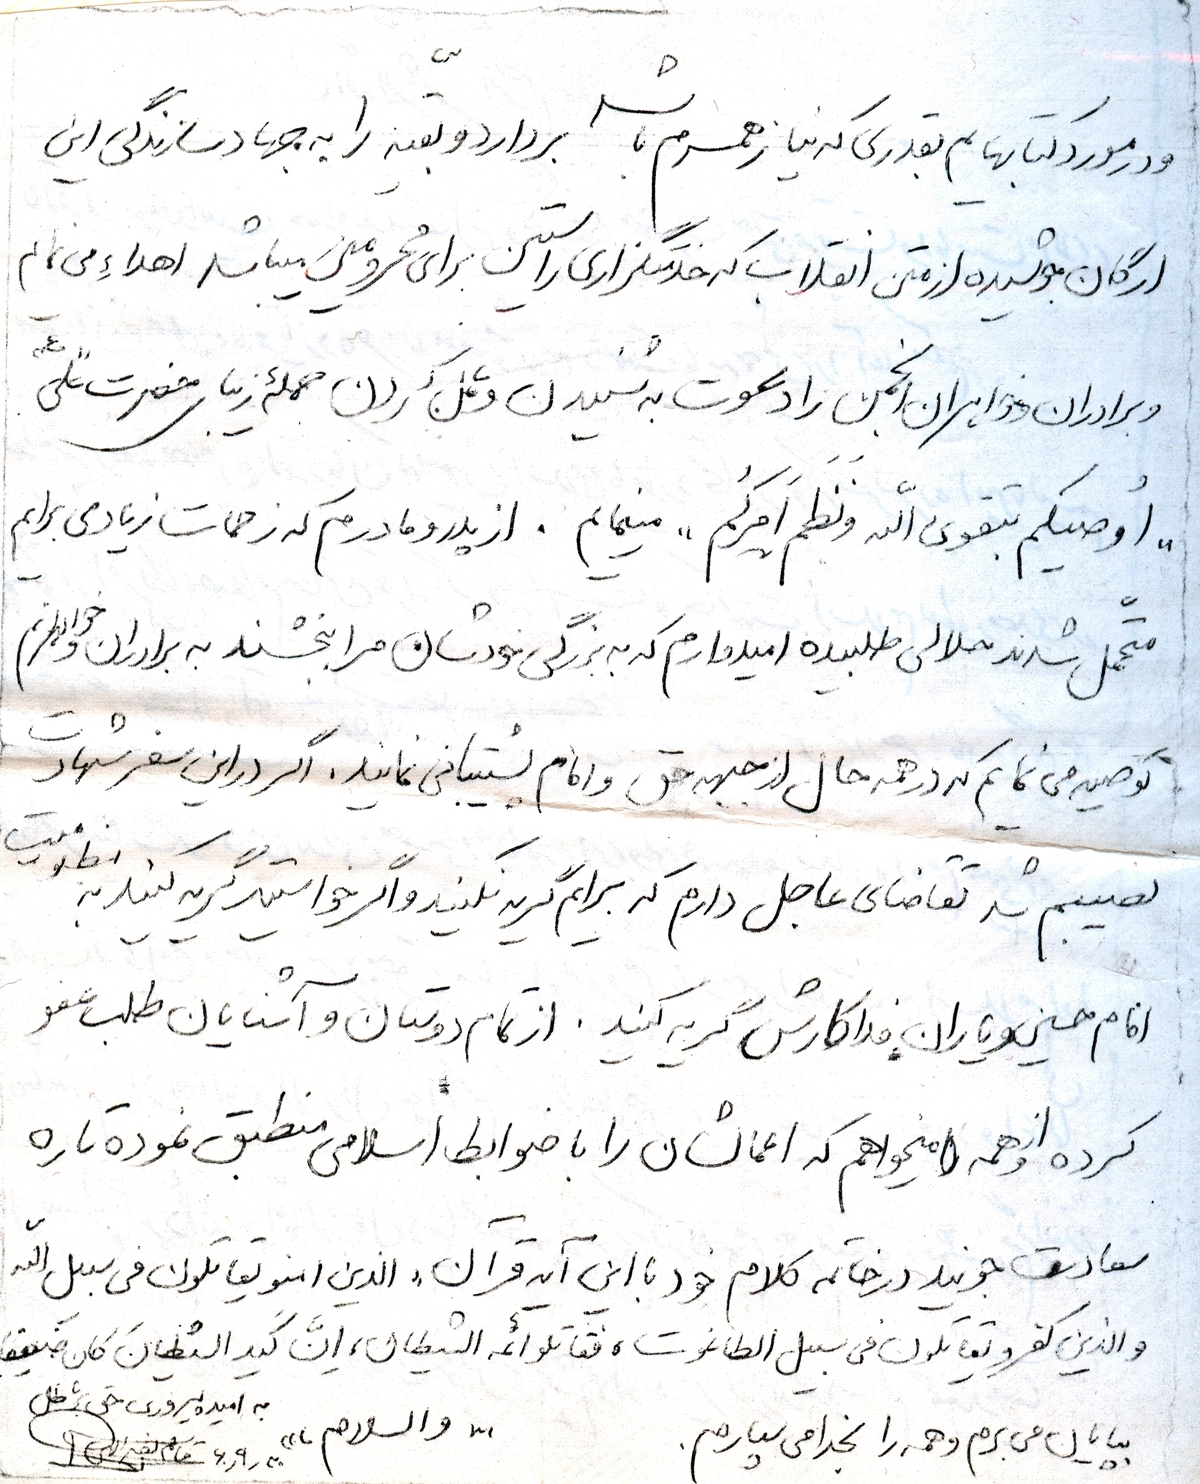 و در مورد کتابهایم بقدری که نیاز همسرم باشد بردارد و بقیه را به جهاد سازندگی این
ارگان جوشیده از متن انقلاب که خدمتگزاری راستین برای محرومین میباشد اهداء می نمایم
و برادران و خواهران انجمن را دعوت به شنیدن و عمل کردن جملهٔ زیبای حضرت علی ع
"اُوصیکم بتقوی اللّه وَنَظْمِ اَمرِکُم" مینمایم . از پدر و مادرم که زحمات زیادی برایم
متحمّل شدند حلالی طلبیده امیدوارم که به بزرگی خودشان مرا ببخشند به برادران و خواهرانم
توصیه می نمایم که در همه حال از جبهه حق و امام پشتیبانی نمایند . اگر در این سفر شهادت
نصیبم شد تقاضای عاجل دارم که برایم گریه نکنید و اگر خواستید گریه کنید به مظلومیت
امام حسین و یاران فداکارش گریه کنید . از تمام دوستان و آشنایان طلب عفو
کرده و از همه میخواهم که اعمالشان را با ضوابط اسلامی منطبق نموده تا ره
سعادت جویند در خاتمه کلام خود با این آیه قرآن " الذین امنو یقاتلون فی سبیل اللّه
والذین کفرو یقاتلون فی سبیل الطاغوت ، فقاتلوا ائمه الشیطان ، اِنَّ کَید الشیطانَ کان ضَعیفا
بپایان می برم و همه را بخدا می سپارم . والسلام
به امید پیروزی حق بر باطل